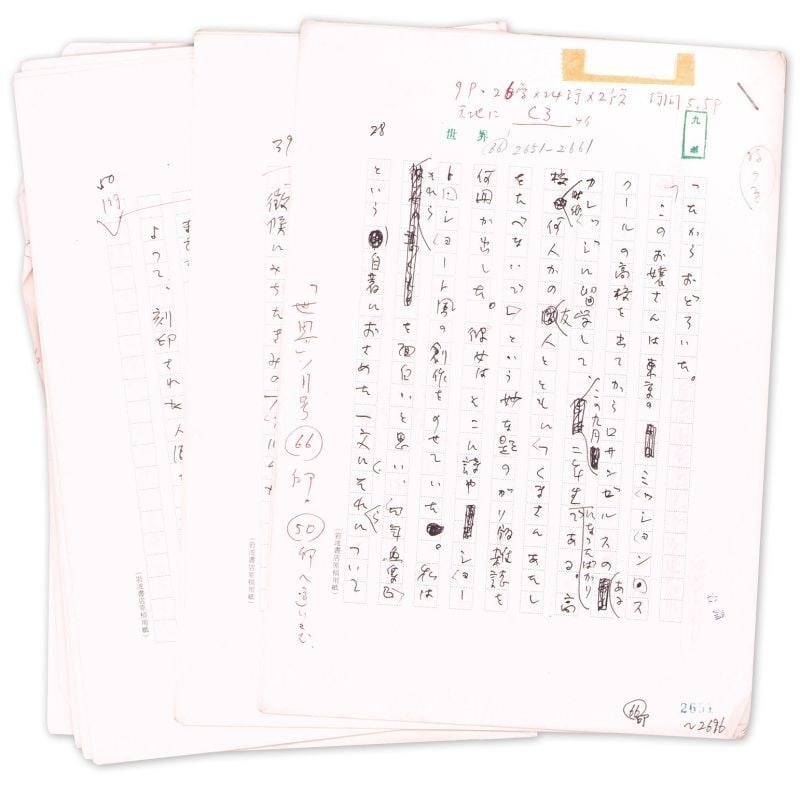 9P・26字×24行×2段 行間5.5P
天地に C3
世界
九ポ
(66) 2651-2661
28
ったからおどろいた。
このお嬢さんは東京のミッションス
クールの高校を出てからロサンゼルスのある
カレッジに留学して、この九月二年生になったばかりである。高
校時代、何人かの友人とともに〈くまさんあたし
をたべないで〉という妙な題のがり版雑誌を
何冊か出した。彼女はそこに詩やショー
トショート風の創作をのせていた。私は
それらを面白いと思い、
という自著におさめた一文にそれについて
(岩波書店原稿用紙)
「世界六月号 66 印。
50 印へ
66印
2651
~2696
39
徴候にみちたきみの
(岩波書店原稿用紙)
50
印
よって、刻印された人間
(岩波書店原稿用紙)